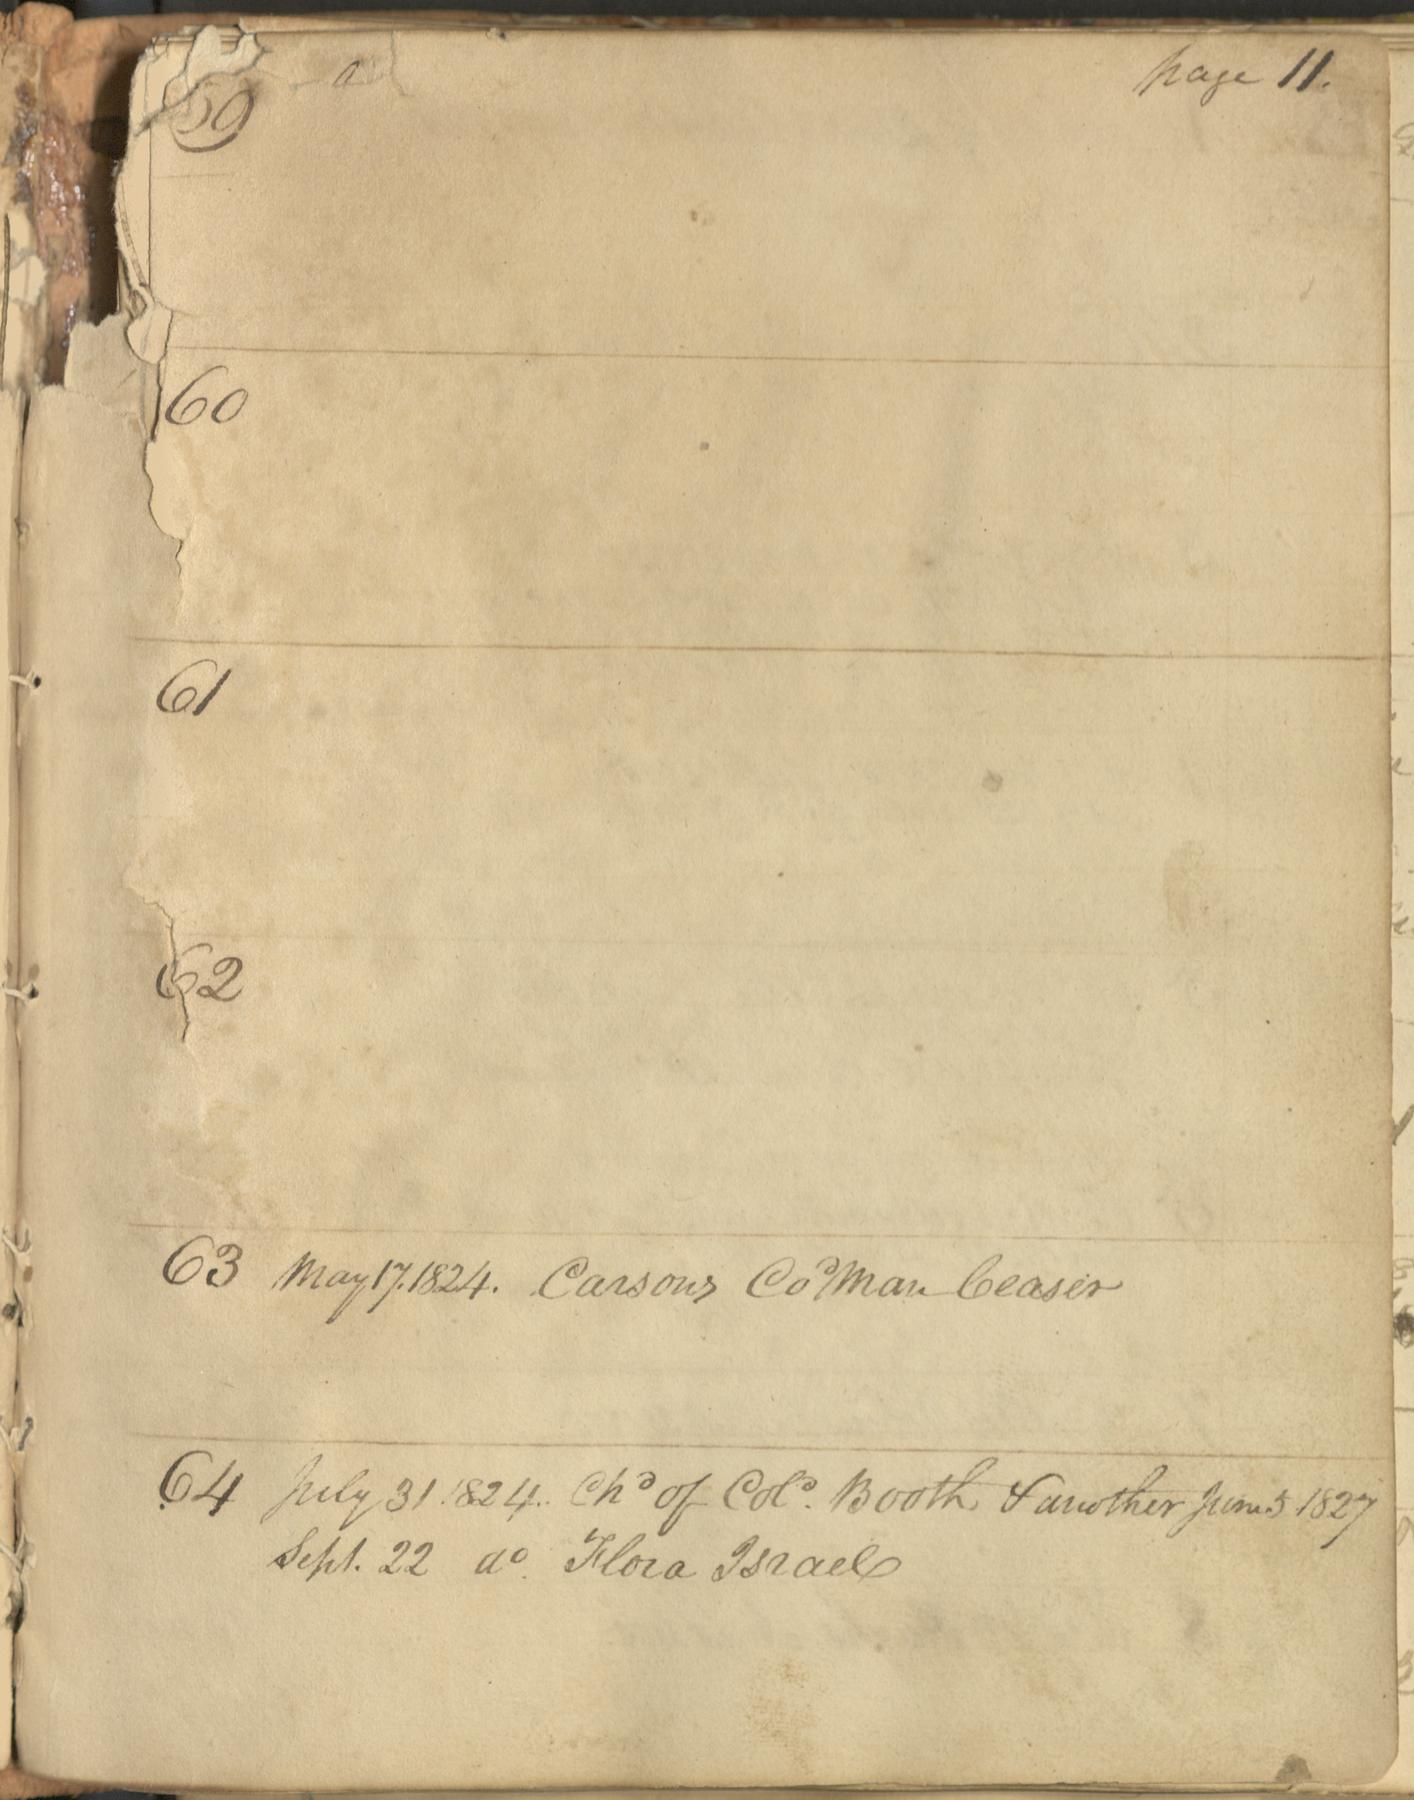 page 11.
59
60
61
62
63 May 17. 1824. Carsons Co.d Man Ceaser
64 July 31 1824. Ch.d of Col.d Booth & another June 5 1827
Sept. 22 do. Flora Israel